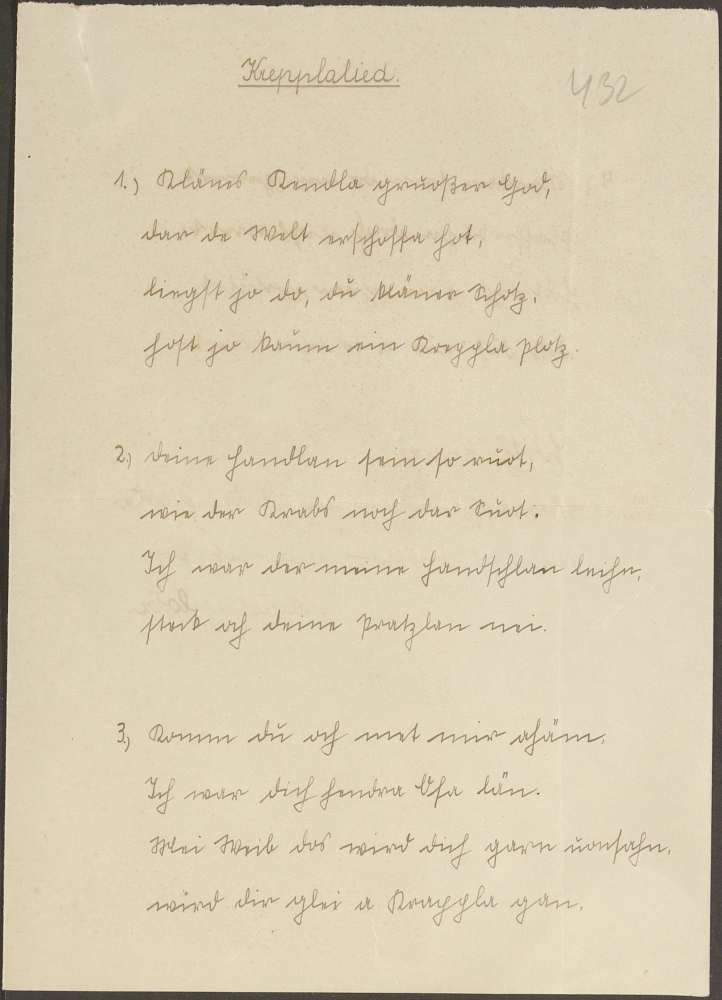 Krepplalied.
432
1.) Klänes Kendla gruoßer God,
dar de Welt erschoffa hot,
liegst jo do, du kläner Schotz,
host jo kaum ein Kreppla Plotz.
2.) Deine Handlan sein so ruot,
wie der Krabs noch dar Suot.
Ich war der meine Handschlan leihn,
steck och deine Pratzlan nei.
3.) Komm du och met mir ahäm,
Ich war dich hendra Ofa län.
Mei Weib dos wird dich garn uonsahn,
wird dir glei a Krappla gan.